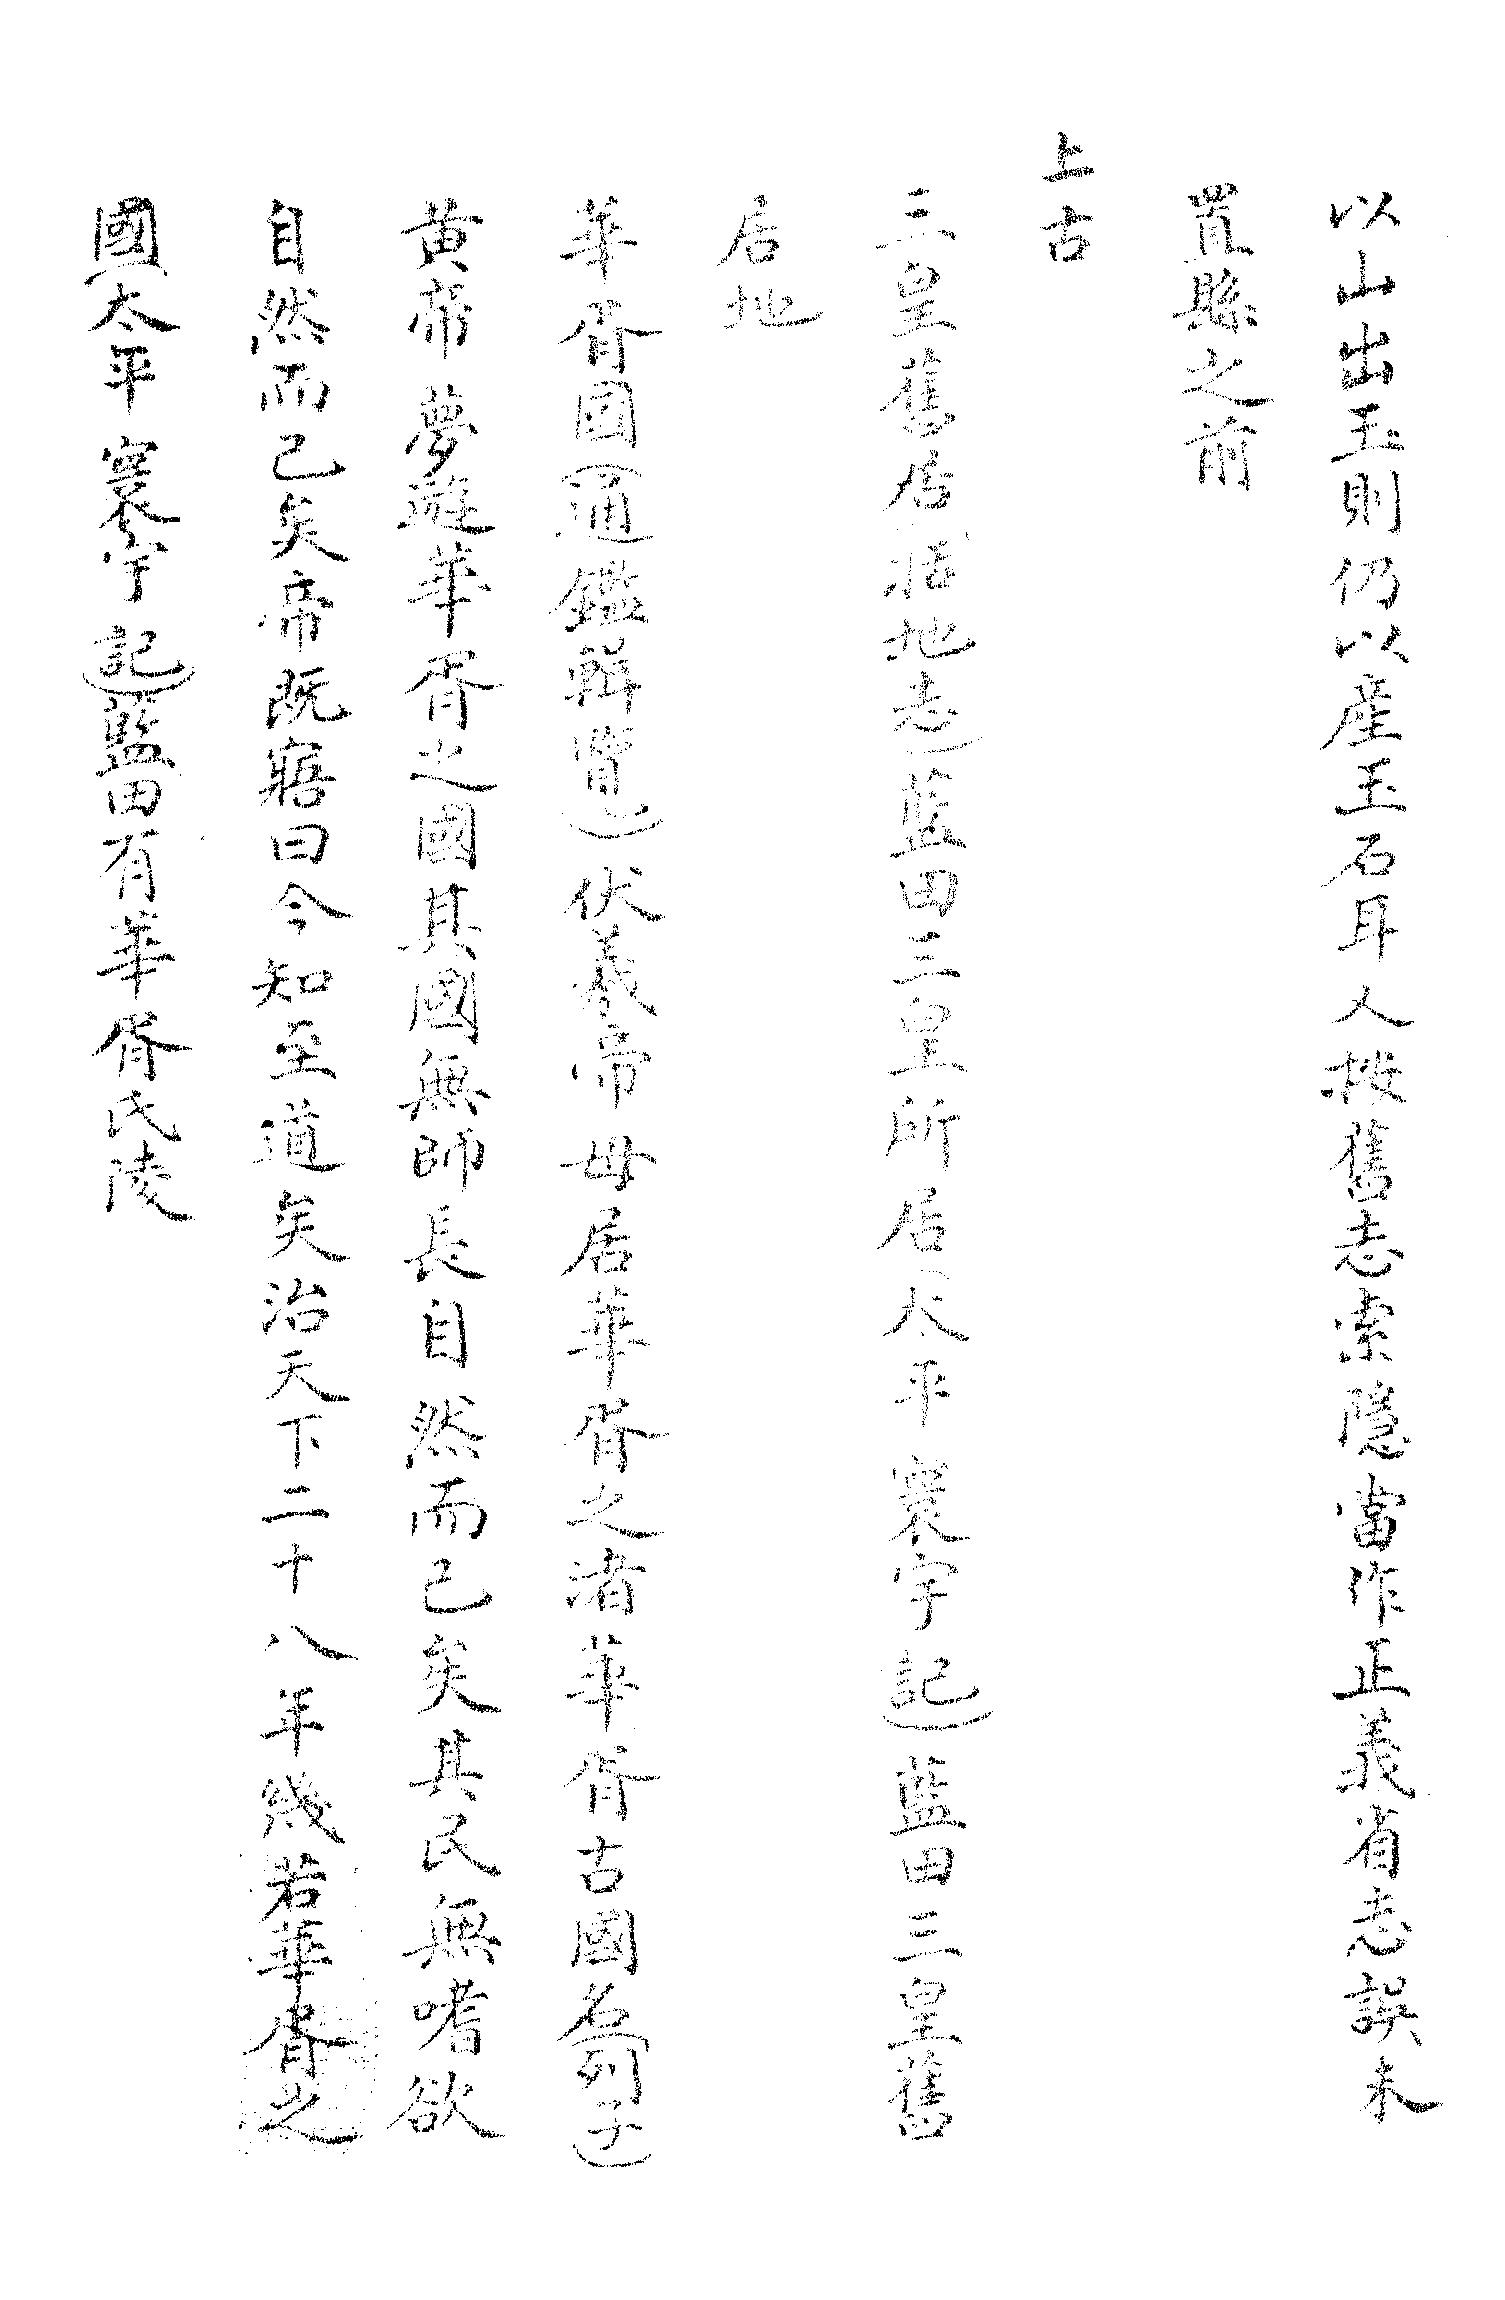 以山出玉則仍以産玉石耳又按舊志索隱當作正義省志誤未
置縣之前
上古
三皇舊居括地志)藍田三皇所居(太平寰宇記)藍田三皇舊
居地
華胥國(通鑑輯覽)伏羲帝母居華胥之渚華胥古國名(列子)
黄帝夢遊華胥之國其國無師長自然而已矣其民無嗜欲
自然而已矣帝既寤曰今知至道矣治天下二十八年幾若華胥之
國(太平寰宇記)藍田有華胥氏陵